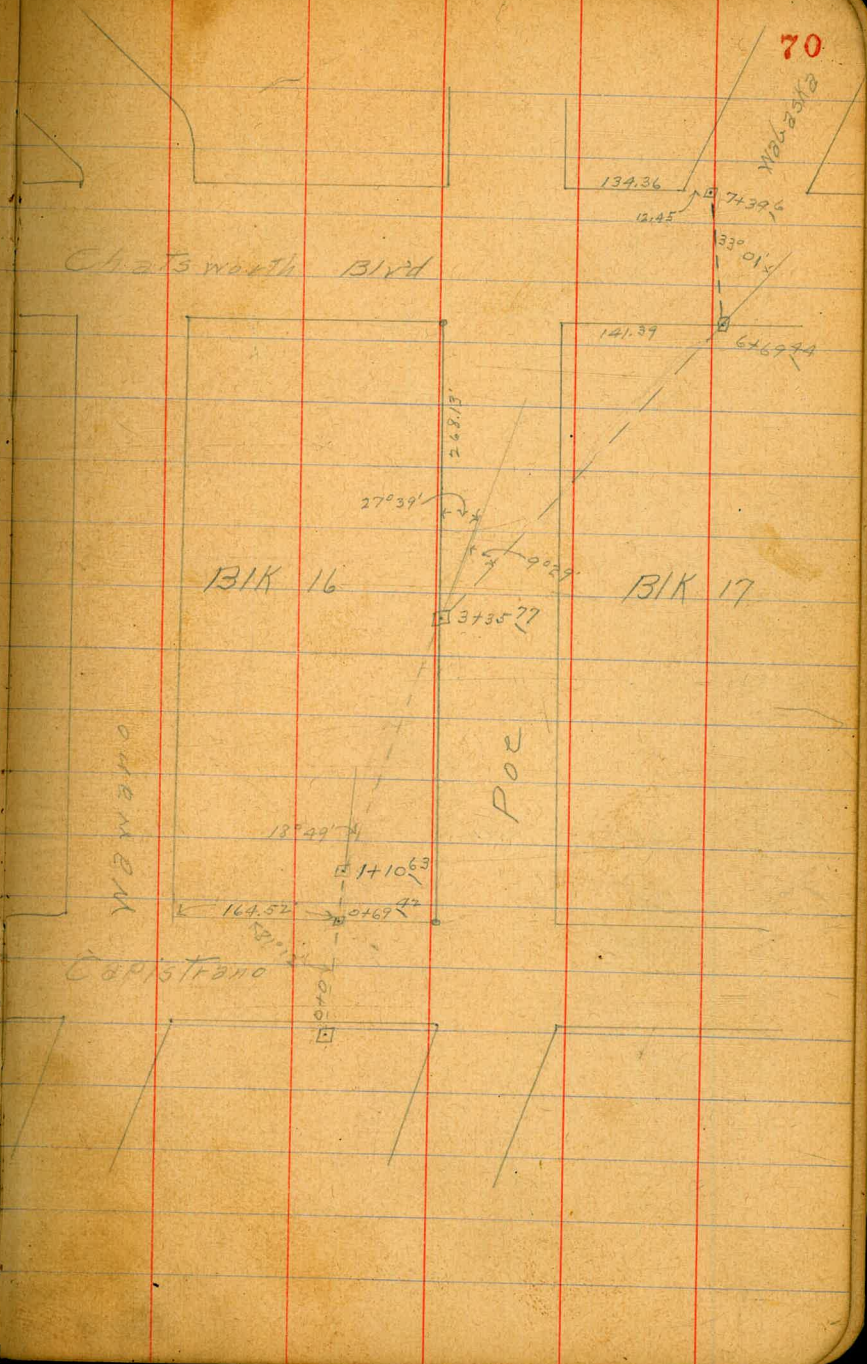 70
Wabaska
134.36
12.45
7+39.6
33° 01'
Chatsworth Blv'd
141.39
6+69 44
268.13'
27° 39'
9° 29'
Blk 16
Blk 17
3+35 77
Poe
18° 49'
1+10 63
164.52'
0+69 42
Capistrano
0+0